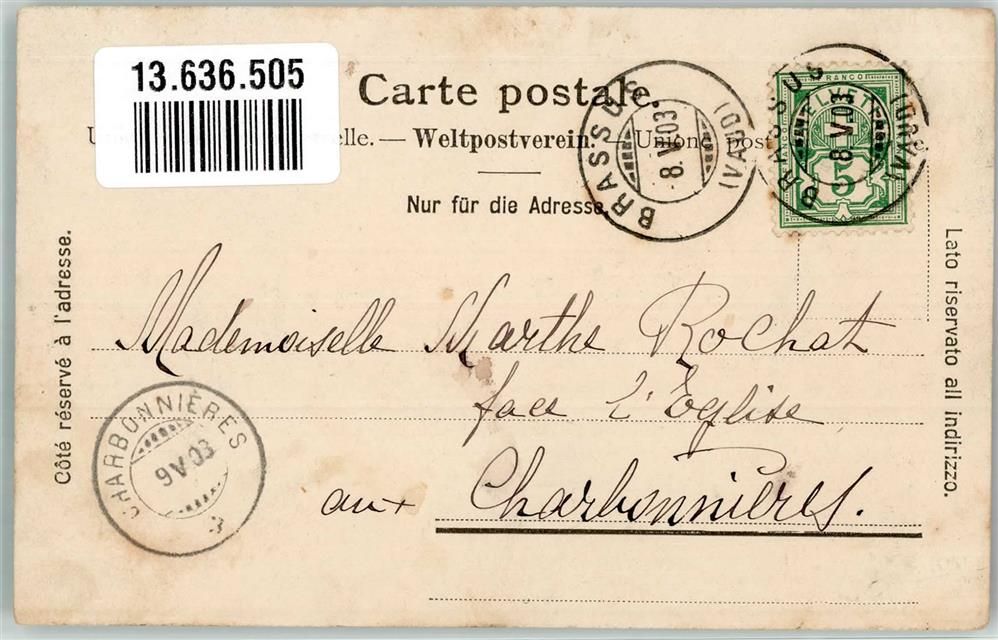 13.636.505
Carte postale.
Un elle. — Weltpostverein. — Union post e.
Nur für die Adresse.
BRASSUS (VAUD)
8.V.03
BRASSUS (VAUD)
8.V.03
FRANCO
HELVETIA
5
Côté réservé à l'adresse.
Lato riservato all indirizzo.
Mademoiselle Marthe Rochat
face l'Eglise
aux Charbonnières.
CHARBONNIÈRES
9.V.03